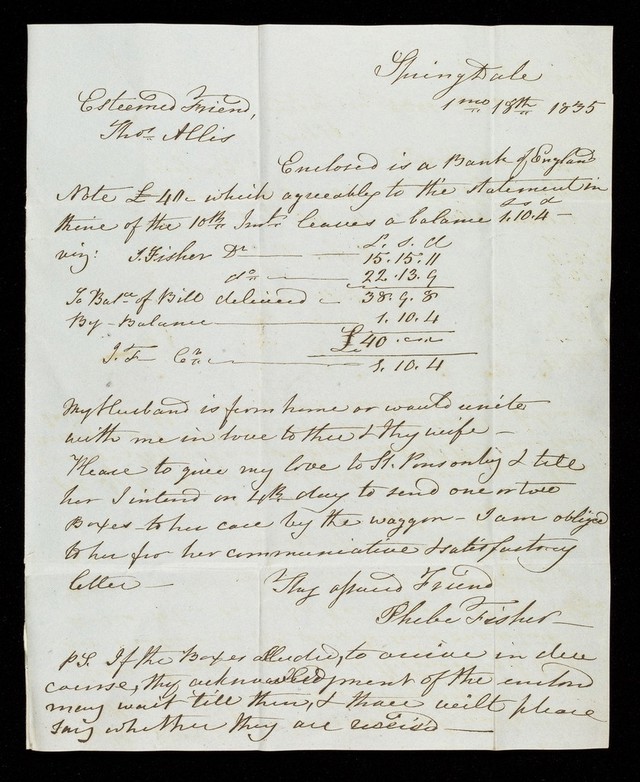 Springdale
1mo 18th 1835
Esteemed Friend,
Thos. Allis
Enclosed is a Bank of England
Note £40 - which agreeably to the statement in
thine of the 10th Inst. leaves a balance £ s d 1.10.4 -
viz: J. Fisher Dr. £. s. d
15.15.11
do 22.13.9
To Balce of Bill delivered 38.9.8
By Balance 1.10.4
£40
J. F Cr. 1.10.4
My Husband is from home or would unite
with me in love to thee & thy wife -
Please to give my love to St. Ponsonby & tell
her I intend on 4th day to send one or two
Boxes to her care by the waggon - I am obliged
to her for her communicative & satisfactory
letter -
Thy affeced Friend
Phebe Fisher -
PS. If the Boxes alluded, to arrive in due
course, thy acknowledgment of the enclosd
may wait till then, & thou wilt please
say whether they are received -